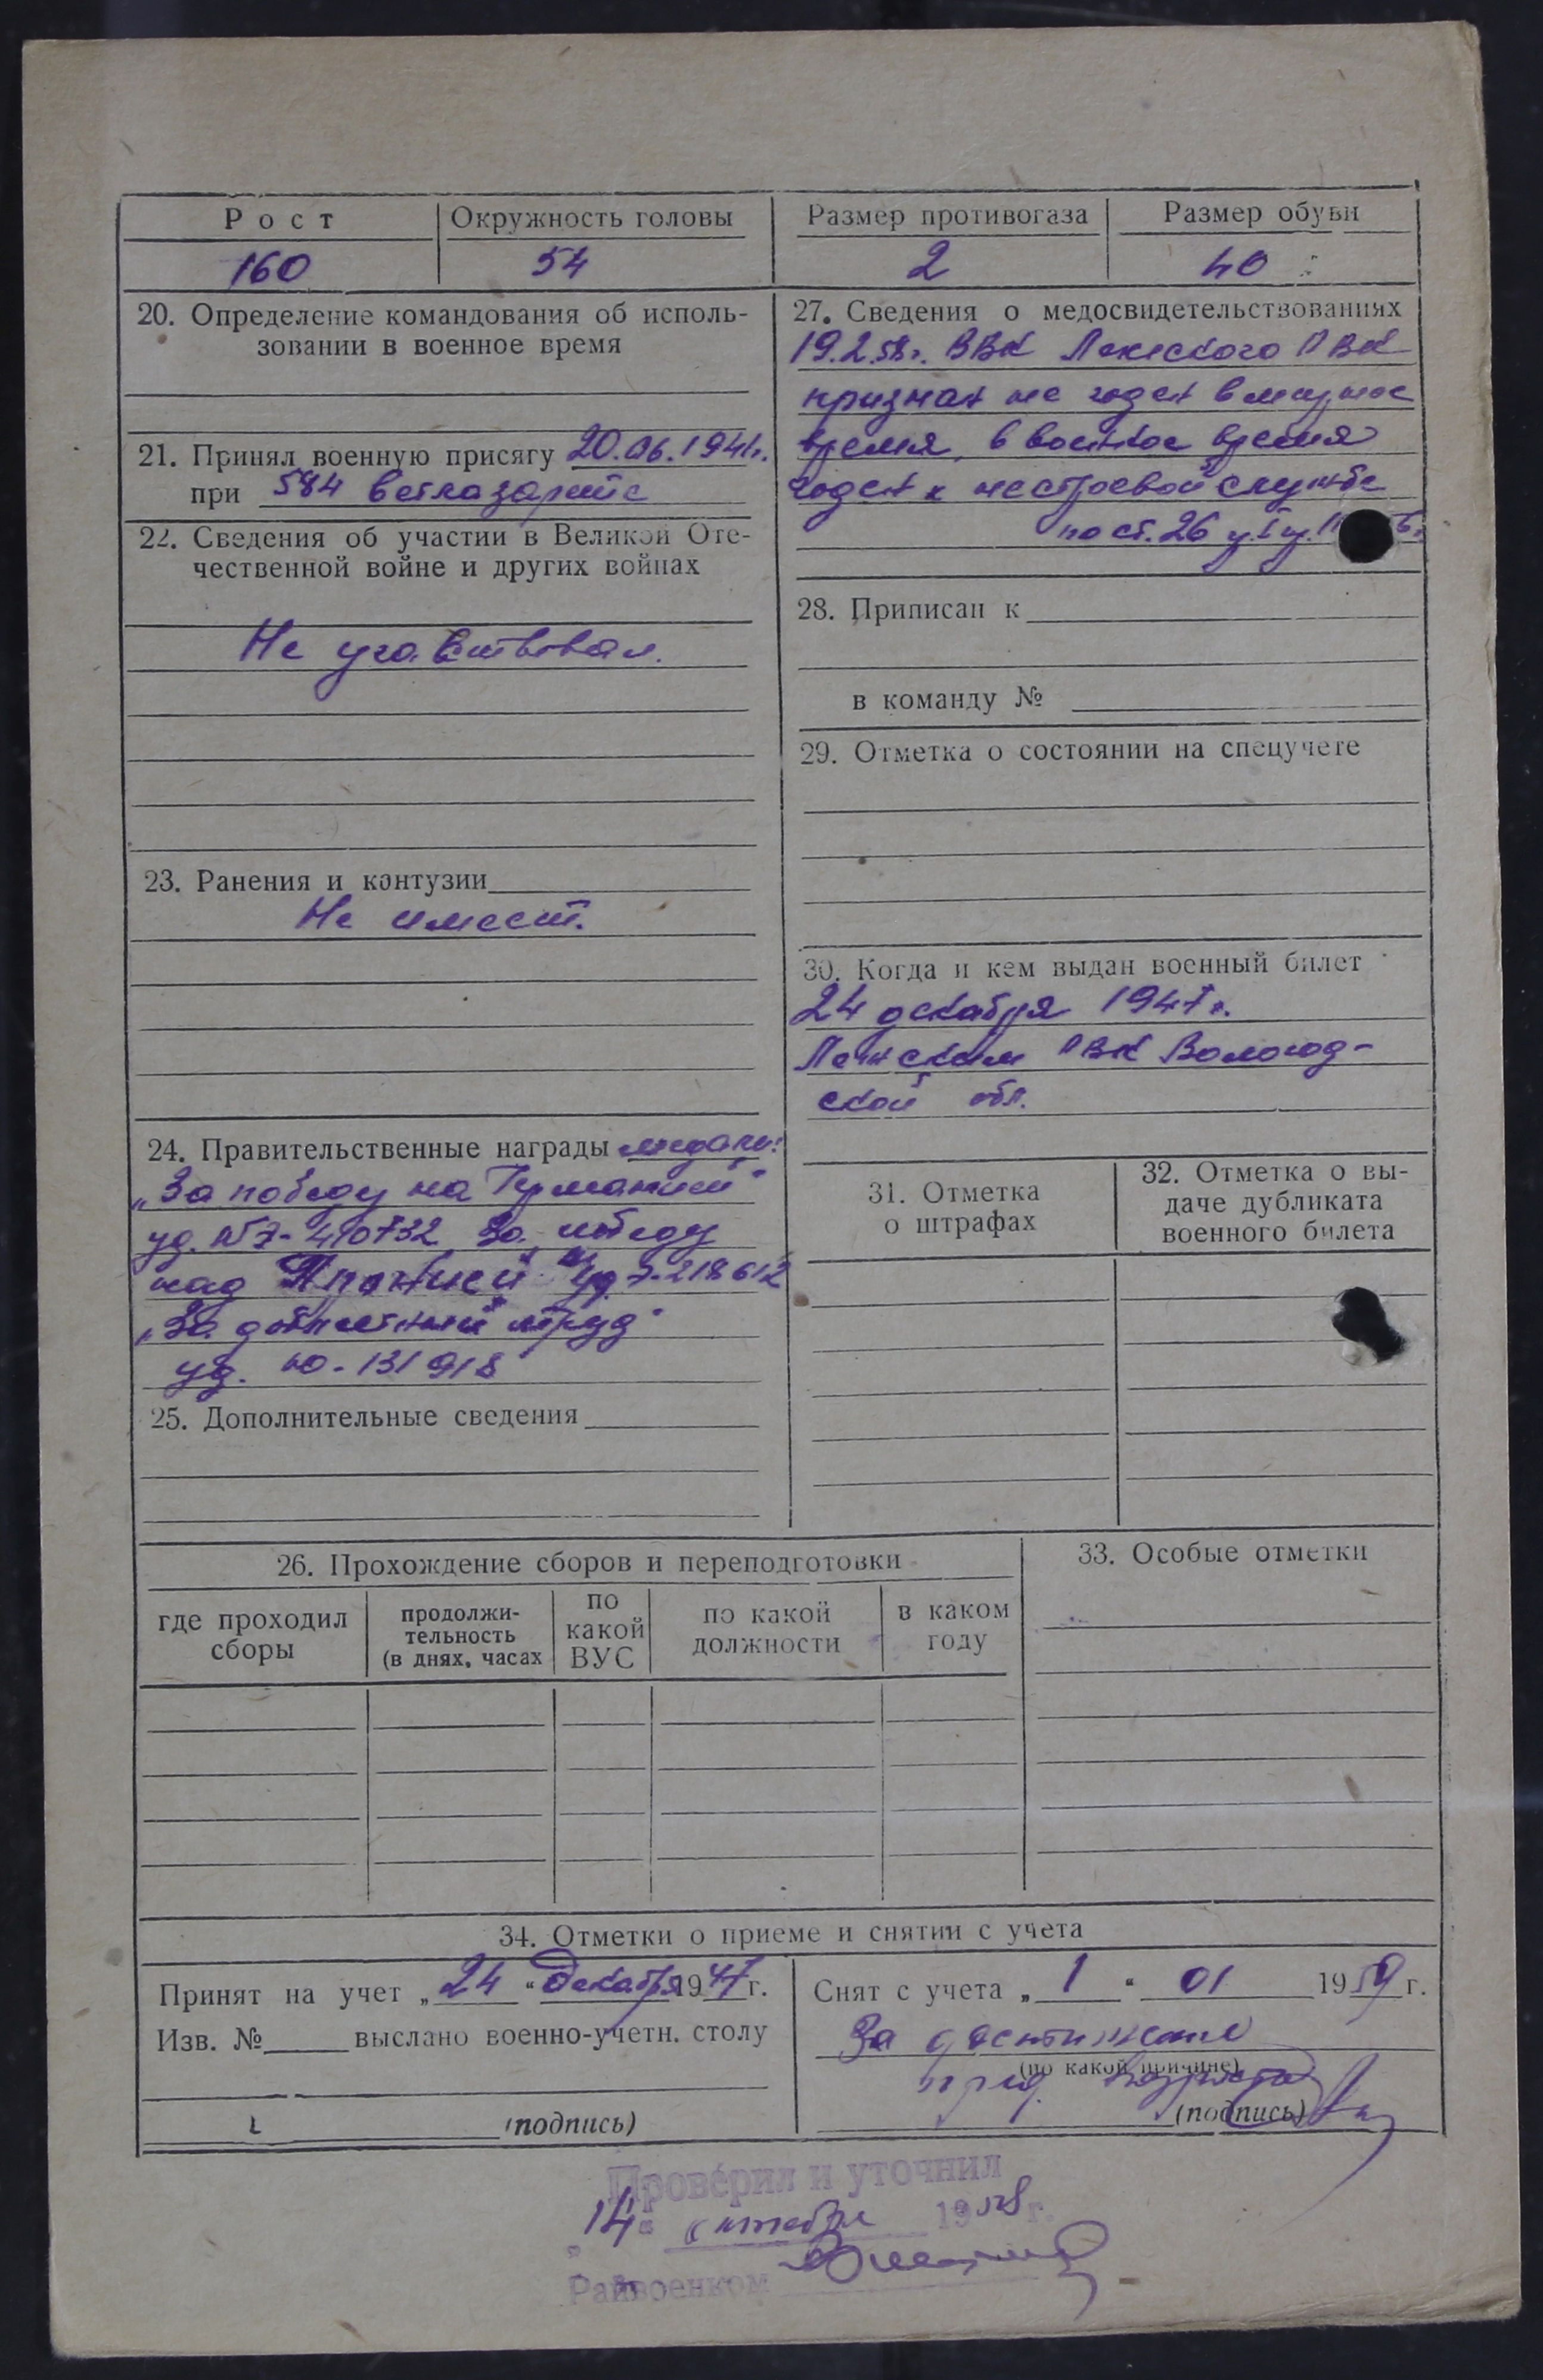 Рост
Окружность головы
Размер противогаза
Размер обуви
160
54
2
40
20. Определение командования об исполь-
зовании в военное время
21. Принял военную присягу 20.06.1941г.
при 584 ветлазарете
22. Сведения об участии в Великой Оте-
чественной войне и других войнах
Не участвовал.
23. Ранения и контузии
Не имеет.
24. Правительственные награды медали:
„За победу на Германией"
уд. № З-410732 За победу
над Японией" уд З-218612
„За доблестный труд"
уд. Ю-131918
25. Дополнительные сведения
27. Сведения о медосвидетельствованиях
19.2.58г. ВВК Ленского РВК
признан не годен в мирное
время, в военное время
годен к нестроевой службе
по ст. 26
28. Приписан к
в команду №
29. Отметка о состоянии на спецучете
30. Когда и кем выдан военный билет
24 декабря 1947г.
Ленским РВК Вологод-
ской обл.
31. Отметка
о штрафах
32. Отметка о вы-
даче дубликата
военного билета
26. Прохождение сборов и переподготовки
где проходил
сборы
продолжи-
тельность
(в днях, часах
по
какой
ВУС
по какой
должности
в каком
году
33. Особые отметки
34. Отметки о приеме и снятии с учета
Принят на учет „24" декабря 1947г.
Изв. № выслано военно-учетн. столу
(подпись)
Снят с учета „1" 01 1959г.
За достижение
(по какой причине)
пред. возраста
(подпись)
Проверил и уточнил
„14" октября 1958г.
Райвоенком